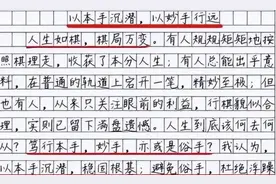 以本手沉潜，以妙手行远
人生如棋，棋局万变。有人规规矩矩地按
照棋理走，收获了本分人生；有人总能出乎意
料，在普通的轨道上宕开一笔，精妙至极；但
也有人，从来只关注眼前的利益，行棋貌似合
理，实则已留下满盘遗憾。人生到底该何去何
从？笃行本手，妙手，亦或是俗手？我认为，
本手沉潜，稳固根基；避免俗手，杜绝浮躁